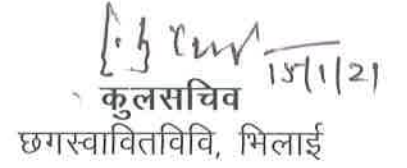 15/1/21
कुलसचिव
छगस्वावितविवि, भिलाई